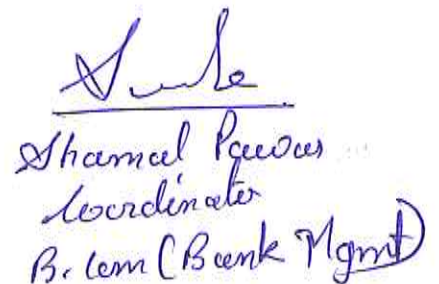 Shamal Pawar
Coordinator
B. Com (Bank Mgmt)